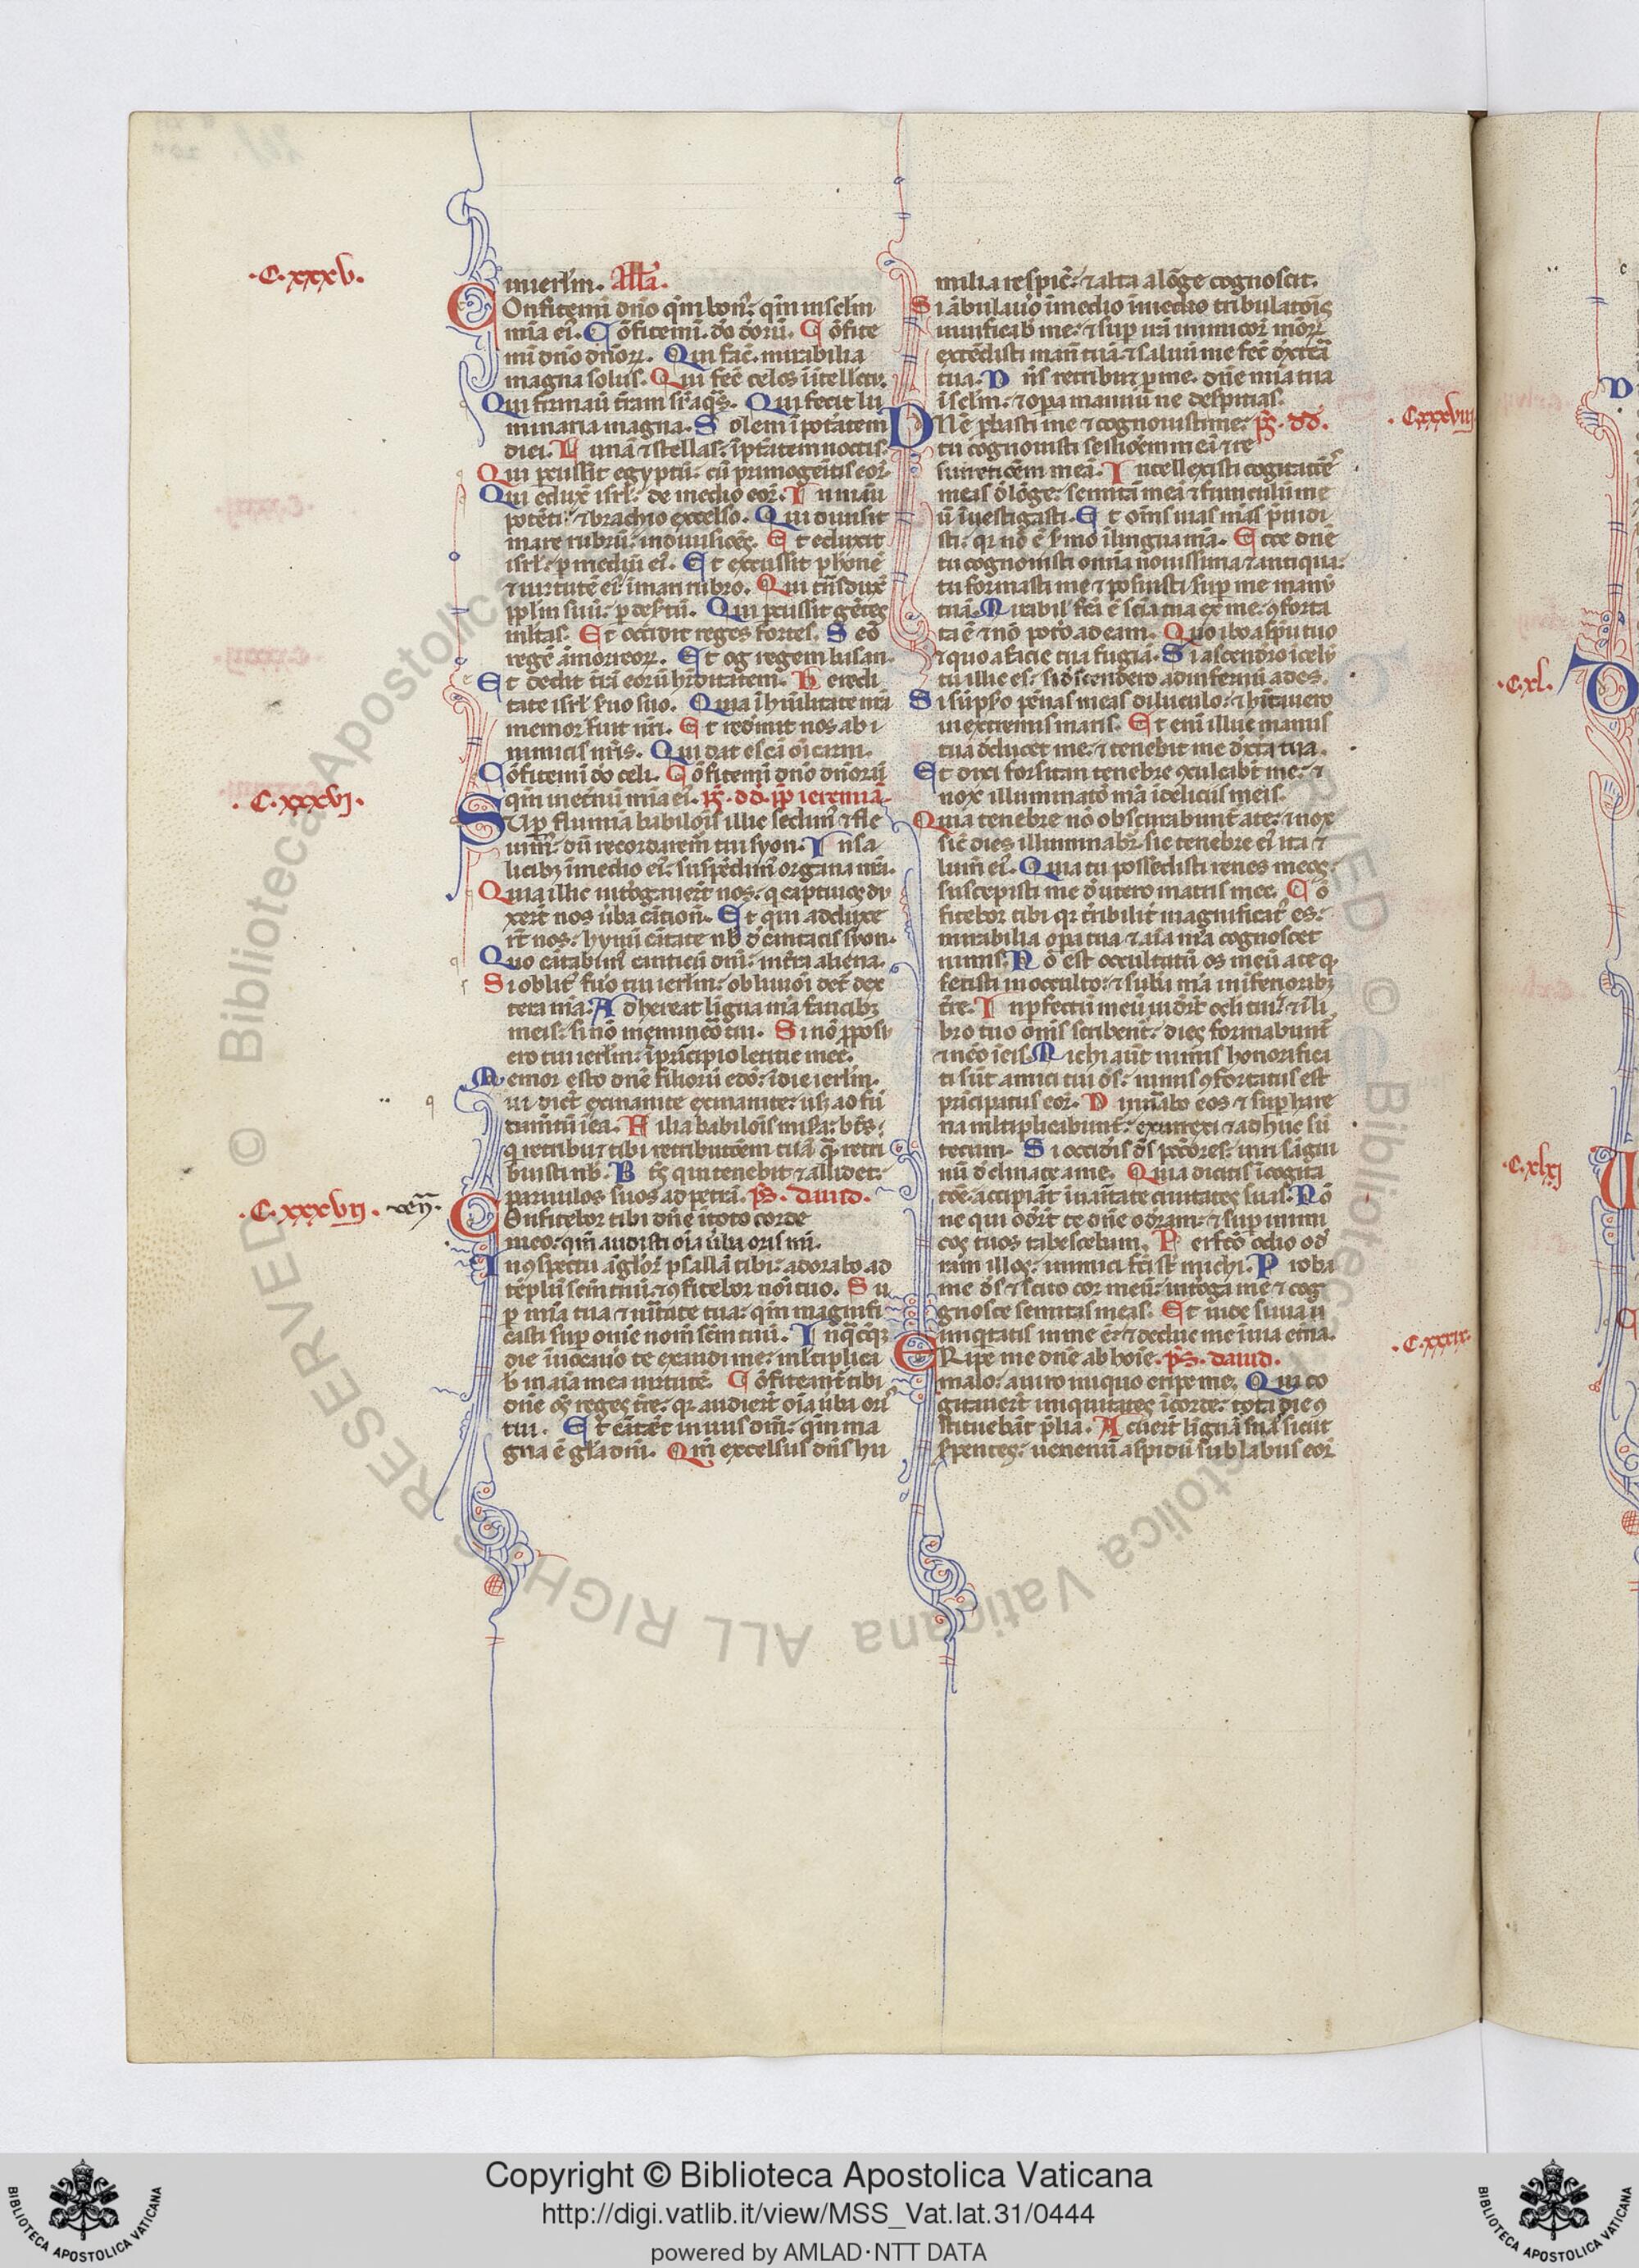 .C.xxxv.
in ierl̄m. All̄a.
COnfitemi dn̄o qm̄ bon᷒: qm̄ in sc̄lm
mīa ei᷒. Cōfitemī. dō dōrū. Cōfite
mī dn̄o dn̄oꝝ. Qui fac̄. mirabilia
magna solus. Qui fec̄ celos ītellectu.
Qui firmaū t̄ram sr̄ aq̄s. Qui fecit lu
minaria magna. Solem ī potātem
diei. Lunā ⁊ stellas: ī ptātem noctis.
Qui ꝑcussit egyptū: cū primogeītis eoꝝ.
Qui edux̄ isrl̄: de medio eoꝝ. In manū
potēti: ⁊ brachio excelso. Qui diuisit
mare rubrū: in diuisiōes. Et eduxit
isrl̄: ꝑ mediū ei᷒. Et excussit phōnē
⁊ uirtutē ei᷒: ī mari rubro. Qui trāsdux̄
ppl̄m suū: ꝑ desertū. Qui ꝑcussit gētes
ml̄tas. Et occidit reges fortes. Seō
regē āmorreoꝝ. Et og regem basan.
Et dedit trā eorū hrd̄itatem. Heredi
tatē isrl̄ suo suo. Quia ī hūilitate nrā
memor fuit nr̄i. Et redimit nos ab i
nimicis nr̄is. Qui dat escā oī carni.
Cōfitemī dō celi. Cōfitemī dn̄o dn̄orū
qm̄ in et̄nū mīa ei᷒. ps̄. dd̄. pp̄ ieremiā.
.C.xxxvi.
SUꝑ flumīa babilōis illic sedim᷒ ⁊ fle
uim᷒: dū recordarem̄ tui syon. In sa
licibꝫ ī medio ei᷒: suspēdim᷒ organa nr̄a.
Quia illic īterrogauert̄ nos: q̄ captiuos du
xert̄ nos ūba cātionū. Et qui adduxe
rt̄ nos: hymū cātate nb̄ d̄ cantacis syon.
Quo cātabim᷒ canticū dn̄i: in tr̄a aliena.
Si oblit᷒ fuo tui ierl̄m: obliuiōi det᷒ dex
tera mīa. Adhereat lingua mīa faucibꝫ
meis: si nō meminēo tui. Si nō ꝓposu
ero tui ierl̄m: ī principio letitie mee.
Memor esto dn̄e filiorū edō: ī die ierl̄m.
Qui dic̄t exinanite exinanite: usꝫ ad fū
damētū ī ea. Filia babilōis misa: bt̄s
q̄ retribuꝫ tibi retributōem tuā q̄ retri
buisti nb̄. Bt̄s qui tenebit ⁊ allidet:
paruulos suos ad petrā. ps̄. dauid.
.C.xxxvii.
COnfitebor tibi dn̄e ī toto corde
meo: qm̄ audisti oīa ūba oris mī.
In ꝯspectu āgloꝝ psallā tibi: adorabo ad
tēplū scm̄ tuū: ⁊ ꝯfitebor noī tuo. Su
ꝑ mīa tua ⁊ ūitate tua: qm̄ magnifi
casti suꝑ oūe nom̄ scm̄ tuū. In q̄cūqꝫ
die īuocauō te exaudi me: ml̄tiplica
b̄ in aīa mea uirtutē. Cōfiteant᷒ tibi
dn̄e oēs reges tr̄e: qr̄ audiert̄ oīa ūba orī
tui. Et cātēt in uiis dn̄i: qm̄ ma
gna ē gla dn̄i. Qm̄ excelsus dn̄s ⁊ hu
milia respic̄: ⁊ alta a lōge cognoscit.
Si ābulauō ī medio ī medio tribulatōis
uiuificab̄ me: ⁊ suꝑ irā inimicoꝝ moꝝ
extēdisti manū tuā: ⁊ saluū me fec̄ dextrā
tua. Dn̄s retribuꝫ ꝑ me. dn̄e mīa tua
ī sc̄lm: ⁊ oꝑa manuū ne despicias.
.C.xxxviii.
DNē ꝓbasti me ⁊ cognouisti me: ps̄. dd̄.
tu cognouisti sessiōem meā ⁊ re
surrectōem meā. Intellexisti cogitatōes
meas d̄ lōge: semitā meā ⁊ funiculū me
ū īuestigasti. Et oīns uias mās p̄uidi
sti: qr̄ nō ē sermo ī lingua mīa. Ecce dn̄e
tu cognouisti omīa nouissima ⁊ antiqua:
tu formasti me ⁊ posuisti suꝑ me manū
tuā. Mirabil᷒ fc̄a ē scīa tua ex me: ꝯforta
ta ē ⁊ nō poto ad eam. Quo ibo a spū tuo
⁊ quo a facie tua fugiā. Si ascendero ī celū
tu illic es: si d̄scendero ad infernū ades.
Si sūpsō pēnas meas diluculo: ⁊ hītauero
in extremis maris. Et eni illuc manus
tua d̄ducet me: ⁊ tenebit me dext̄a tua.
Et dixi forsitan tenebre ꝯculcabt̄ me: ⁊
nox illuminatō mā ī deliciis meis.
Quia tenebre nō obscurabunt᷒ a te: ⁊ nox
sic̄ dies illuminabr̄: sic tenebre ei᷒ ita ⁊
lum̄ ei᷒. Quia tu possedisti renes meos:
suscepisti me d̄ utero matris mee. Cō
fitebor tibi qr̄ tr̄ibilit᷒ magnificat᷒ es:
mirabilia oꝑa tua ⁊ aīa mā cognoscet
nimis. Nō est occultatū os meū a te q̄
fecisti in occulto: ⁊ subā mā ī īferioribꝫ
tr̄e. Inꝑfectū meū uidert̄ ocli tui: ⁊ ī li
bro tuo oīns scribent᷒: dies formabunt᷒
⁊ nēo ī eis. Michi aūt nimis honorifica
ti sūt amici tui ds̄: nimis ꝯfortatus est
principatus eoꝝ. Dinūabo eos ⁊ suꝑ hare
nā ml̄tiplicabunt᷒: exurrexi ⁊ adhuc sū
tecum. Si occidis ds̄ pctōres: uiri sāgui
nū d̄clinate a me. Quia dicitis ī cogita
tōe: accipiāt ī uanitate ciuitates suas. Nō
ne qui odērt̄ te dn̄e oderam: ⁊ suꝑ inimi
cos tuos tabescebam. Perfectō odio od
eram illos: inimici fc̄i sūt michi. Proba
me ds̄ ⁊ scito cor meū: īterroga me ⁊ cog
gnosce semitas meas. Et uide si uia
iniqtatis in me ē: ⁊ deduc me ī uia et̄na.
.C.xxxix.
ERipe me dn̄e ab hoīe. ps̄. dauid.
malo: a uiro iniquo eripe me. Qui co
gitauert̄ iniquitates ī corde: tota die ꝯ
stituebāt p̄lia. Acuert̄ linguā suā sicut
serpentes: uenenū aspidū sub labiis eoꝝ
.C.xl.
.C.xli
© Biblioteca Apostolica Vaticana ALL RIGHTS RESERVED
Copyright © Biblioteca Apostolica Vaticana
http://digi.vatlib.it/view/MSS_Vat.lat.31/0444
powered by AMLAD·NTT DATA
BIBLIOTECA APOSTOLICA VATICANA
BIBLIOTECA APOSTOLICA VATICANA